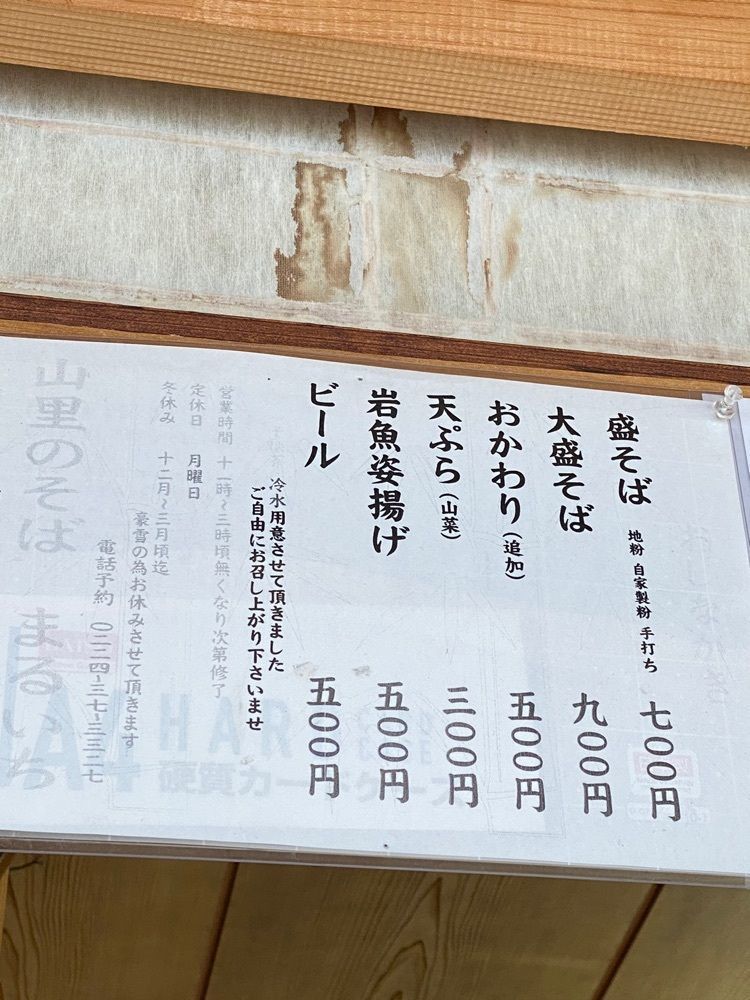 盛そば 地粉 自家製粉 手打ち 七〇〇円
大盛そば 九〇〇円
おかわり(追加) 五〇〇円
天ぷら(山菜) 三〇〇円
岩魚姿揚げ 五〇〇円
ビール 五〇〇円
冷水用意させて頂きました
ご自由にお召し上がり下さいませ
営業時間 十一時~三時頃無くなり次第修了
定休日 月曜日
冬休み 十二月~三月頃迄
豪雪の為お休みさせて頂きます
電話予約 〇二二四-三七-三三二七
山里のそば まるいち
HARD
硬質カードケース